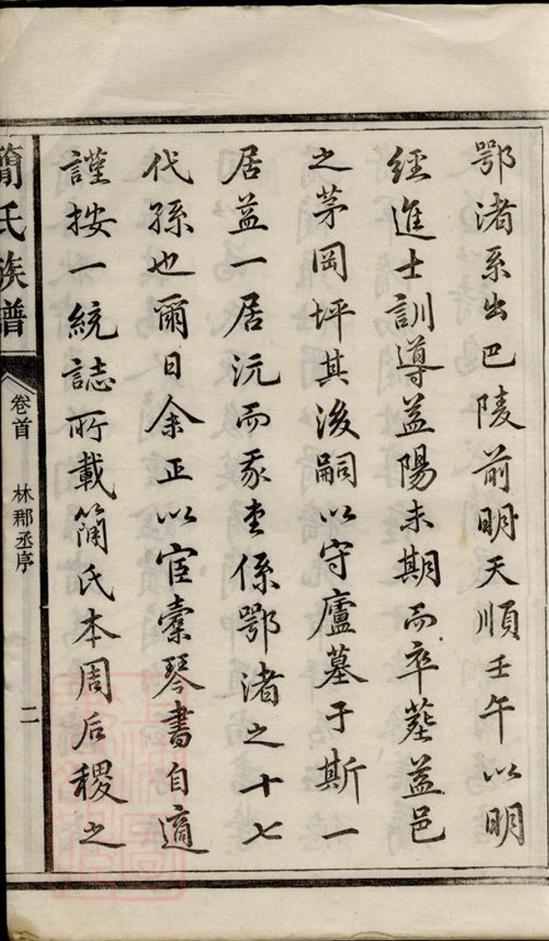 鄂渚系出巴陵前明天順壬午以明
經進士訓導益陽未期而卒塟益邑
之茅岡坪其後嗣以守廬墓于斯一
居益一居沅而豕坣係鄂渚之十七
代孫也爾日余正以宦橐琴書自適
謹按一統誌所載簡氏本周后稷之
簡氏族譜
卷首
林郡丞序
二